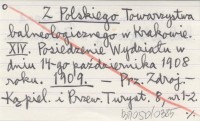 Z Polskiego Towarzystwa
balneologicznego w Krakowie.
XIV. Posiedzenie Wydziału w
dniu 14-go października 1908
roku. 1909. — Prz. Zdroj.-
Kąpiel. i Przew. Turyst. 8, nr 1-2.